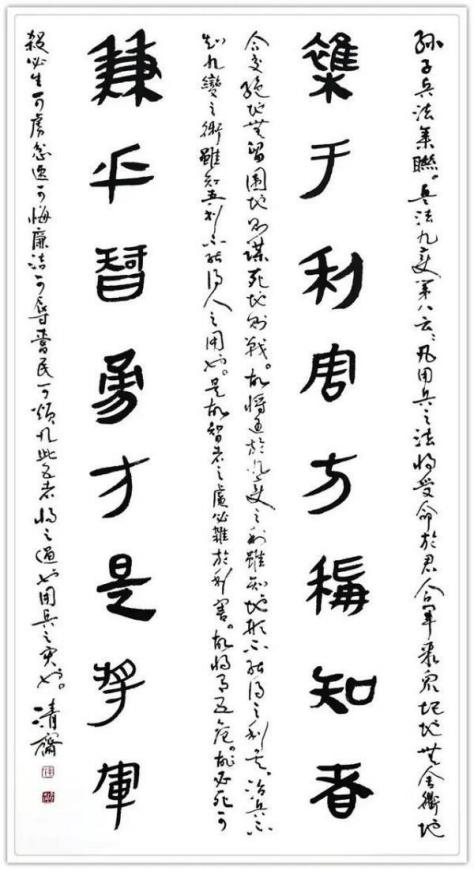 孫子兵法集聯。兵法九變第八云、凡用兵之法將受命於君合軍聚眾圮地無舍衢地
襍于利害方稱知者
合交絕地無留圍地則謀死地則戰。故將通於九變之利雖知地形不能得之利矣。治兵不
知九變之術雖知五利不能得人之用也。是故智者之慮必雜於利害。故將有五危。故必死可
兼乎智勇才是將軍
殺必生可虜忿速可悔廉潔可辱愛民可煩凡此五者將之過也用兵之災也。清齋